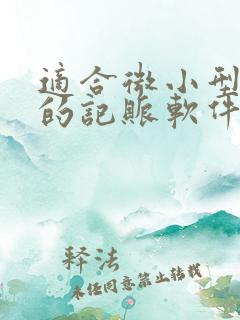 適合微小型
的記賬軟件
释法
未经同意禁止转载